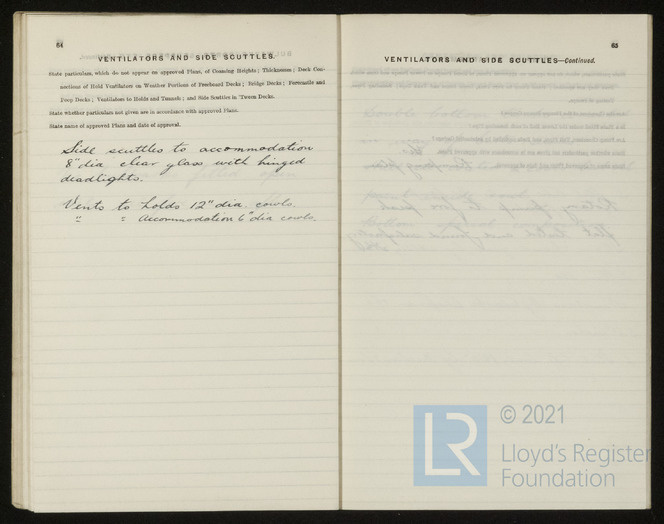 64
VENTILATORS AND SIDE SCUTTLES.
State particulars, which do not appear on approved Plans, of Coaming Heights; Thicknesses; Deck Con-
nections of Hold Ventilators on Weather Portions of Freeboard Decks; Bridge Decks; Forecastle and
Poop Decks; Ventilators to Holds and Tunnels; and Side Scuttles in 'Tween Decks.
State whether particulars not given are in accordance with approved Plans.
State name of approved Plans and date of approval.
Side scuttles to accommodation
8" dia clear glass with hinged
deadlights.
Vents to holds 12" dia. cowls.
" " accommodation 6" dia cowls.
65
VENTILATORS AND SIDE SCUTTLES—Continued.
LR
© 2021
Lloyd's Register
Foundation